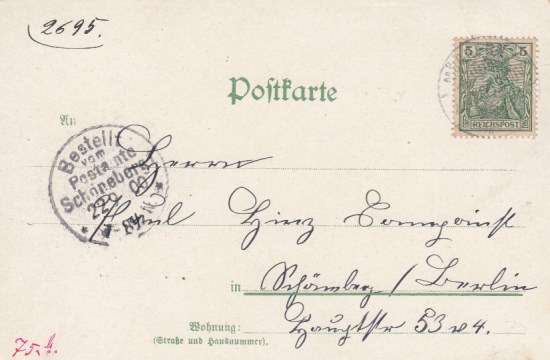 2695.
Postkarte
5 5
REICHSPOST
An
Bestellt
vom
Postamte
Schöneberg
Herrn
Paul Hinz Componist
in Schöneberg / Berlin
Wohnung: Hauptstr 53 v 4.
(Straße und Hausnummer).
75 ₰.